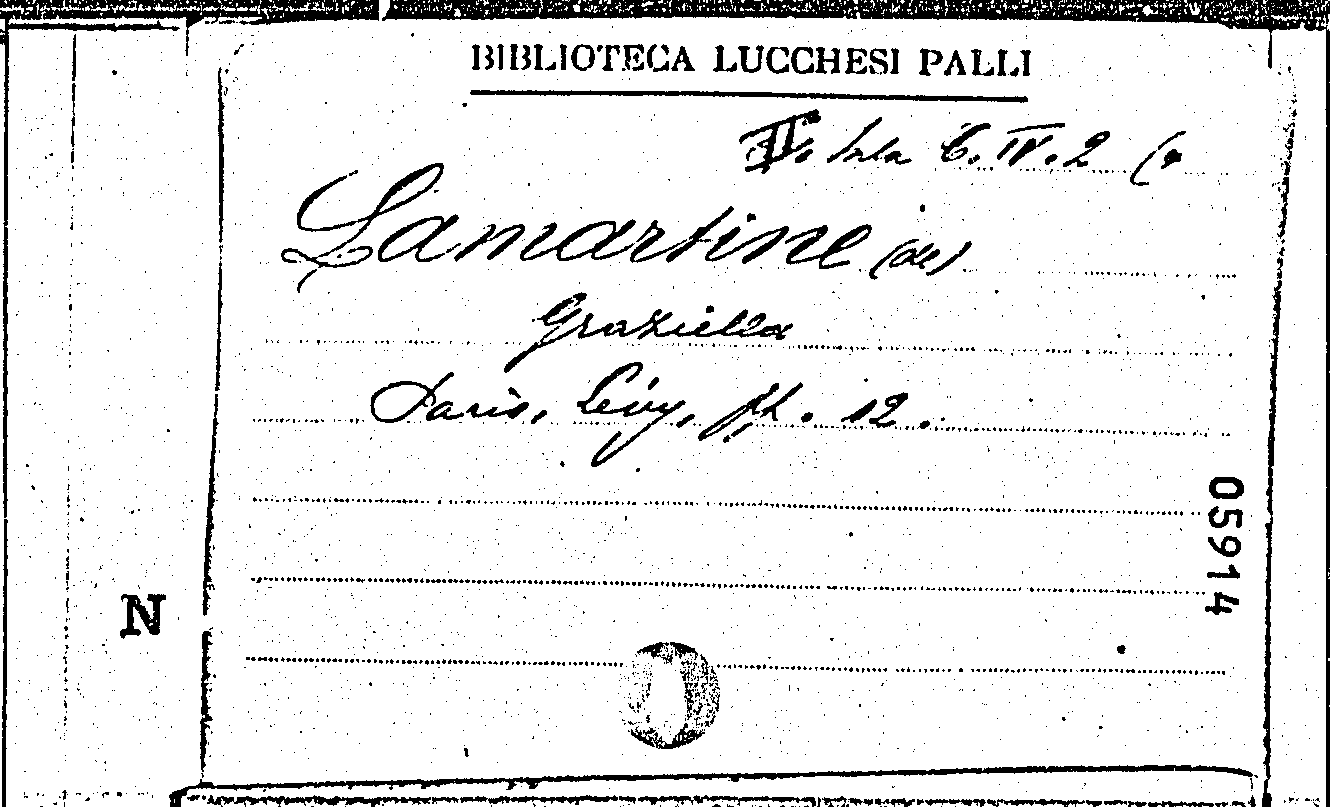 BIBLIOTECA LUCCHESI PALLI
II. Sala 6. IV. 2 (
Lamartine (de)
Graziella
Paris, Lévy, 12.
05914
N